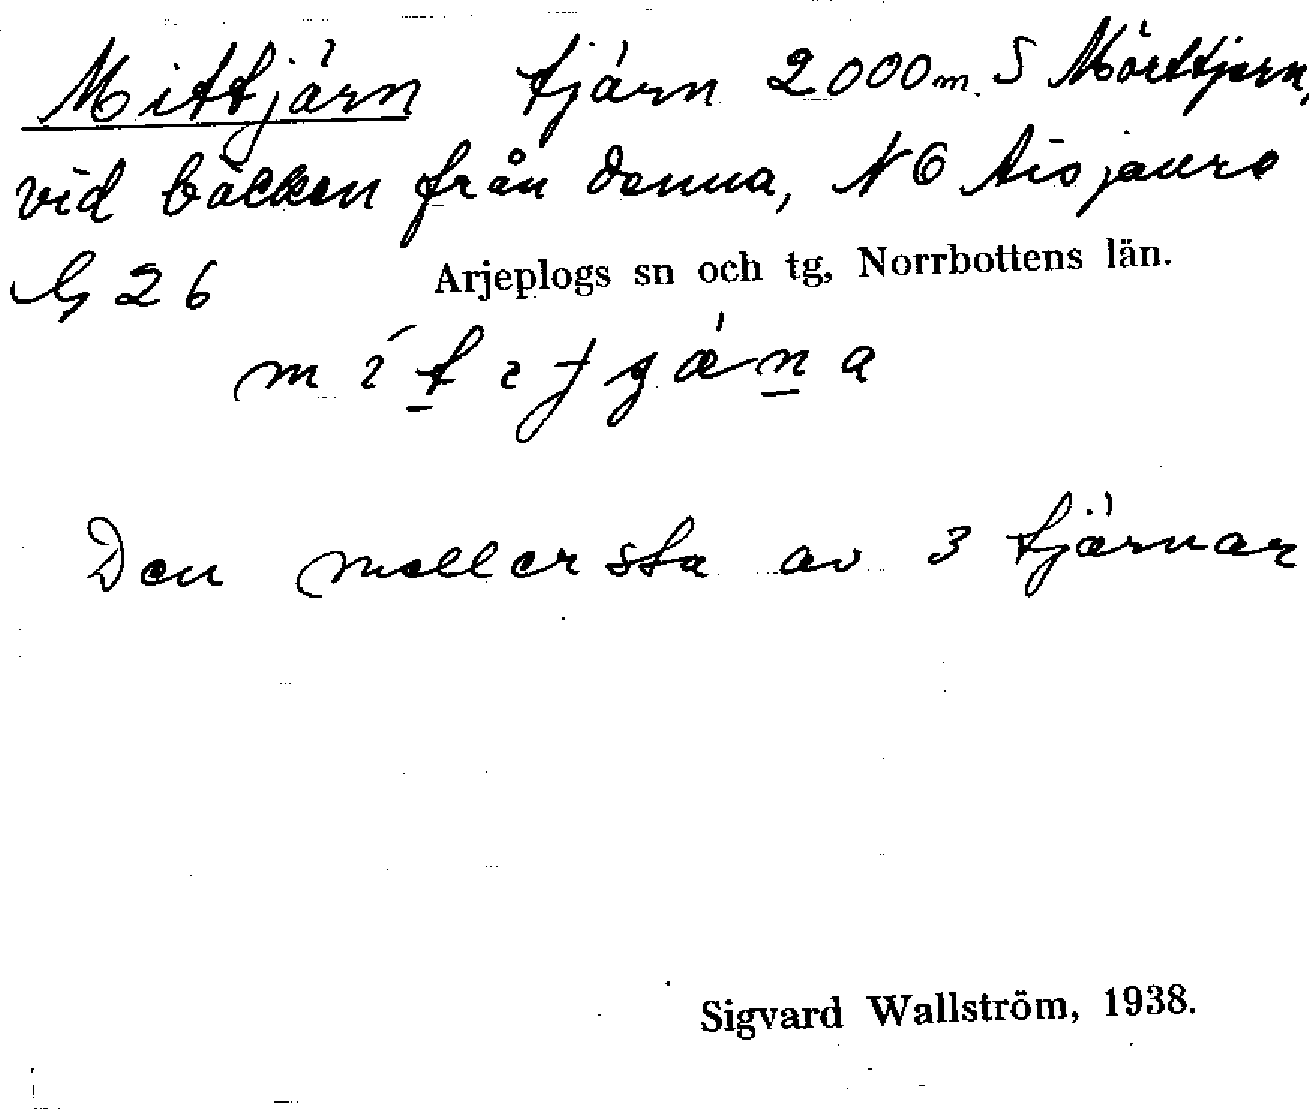 Mittjärn tjärn 2000 m. S Mörttjärn,
vid bäcken från denna, NO Aisjaure
G 26 Arjeplogs sn och tg, Norrbottens län.
Den mellersta av 3 tjärnar
Sigvard Wallström, 1938.